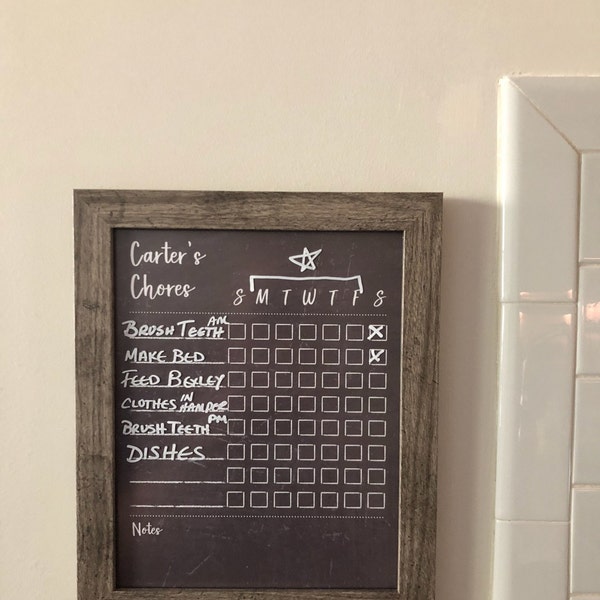 Carter's
Chores
S M T W T F S
BRUSH TEETH AM
MAKE BED
FEED BEXLEY
CLOTHES IN HAMPER
BRUSH TEETH PM
DISHES
Notes